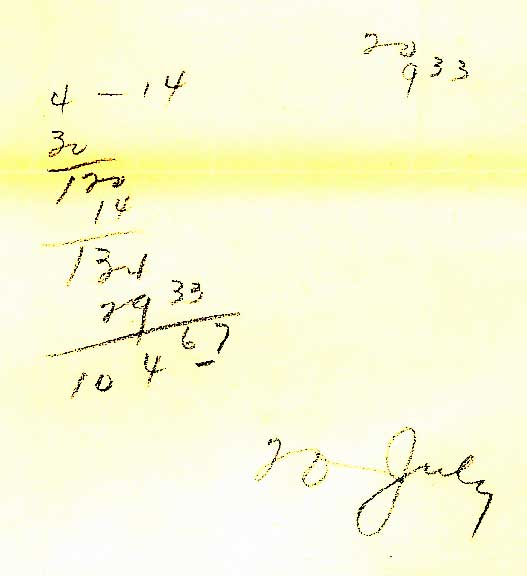 20
933
4 - 14
30
120
14
134
29 33
104 67
20 July